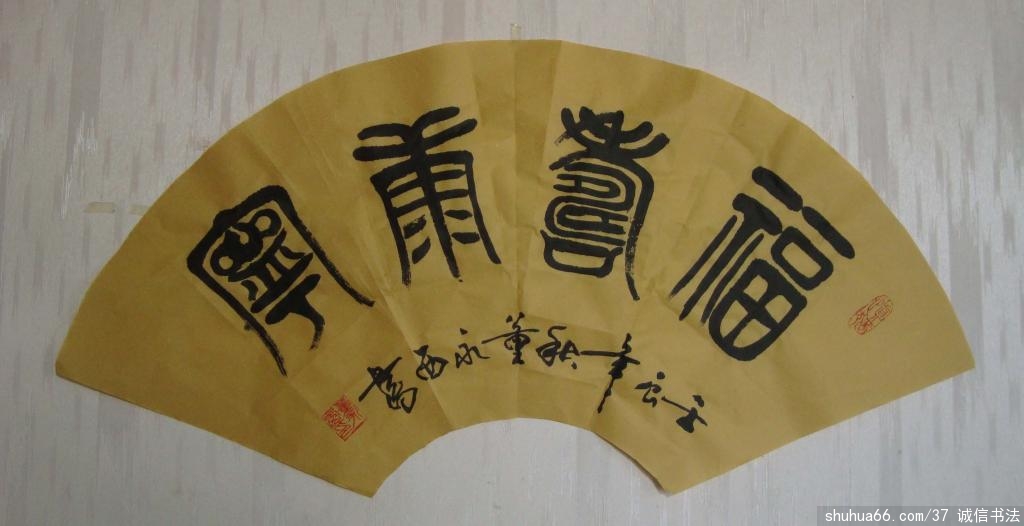 福壽康寧
壬辰年秋董永西書
shuhua66.com/37 诚信书法